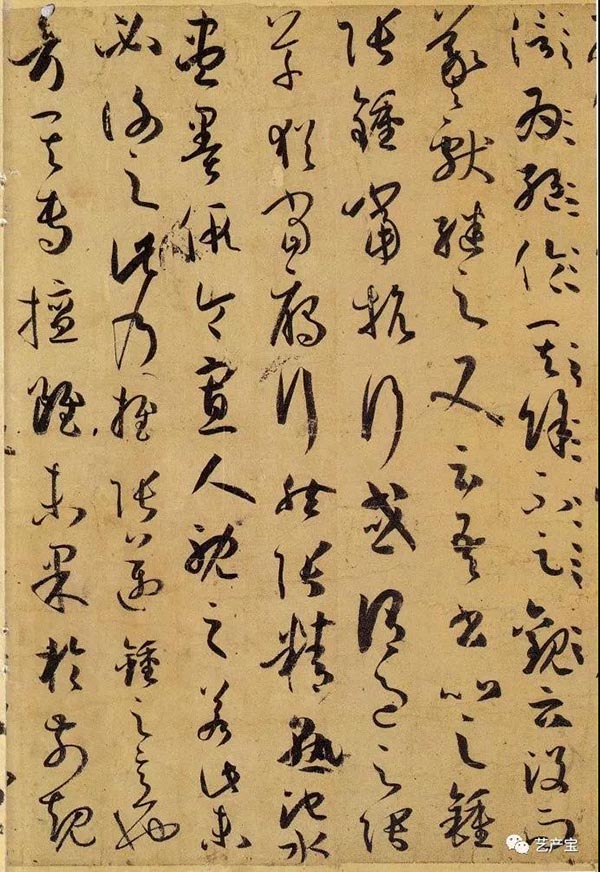 信為絕倫其餘不足觀云沒而
羲獻繼之又云吾書比之鍾
張鍾當抗行或謂過之張
草猶當雁行然張精熟池水
盡墨假令寡人耽之若此未
必謝之此乃推張邁鍾之意也
考其專擅雖未果於前規
艺产宝